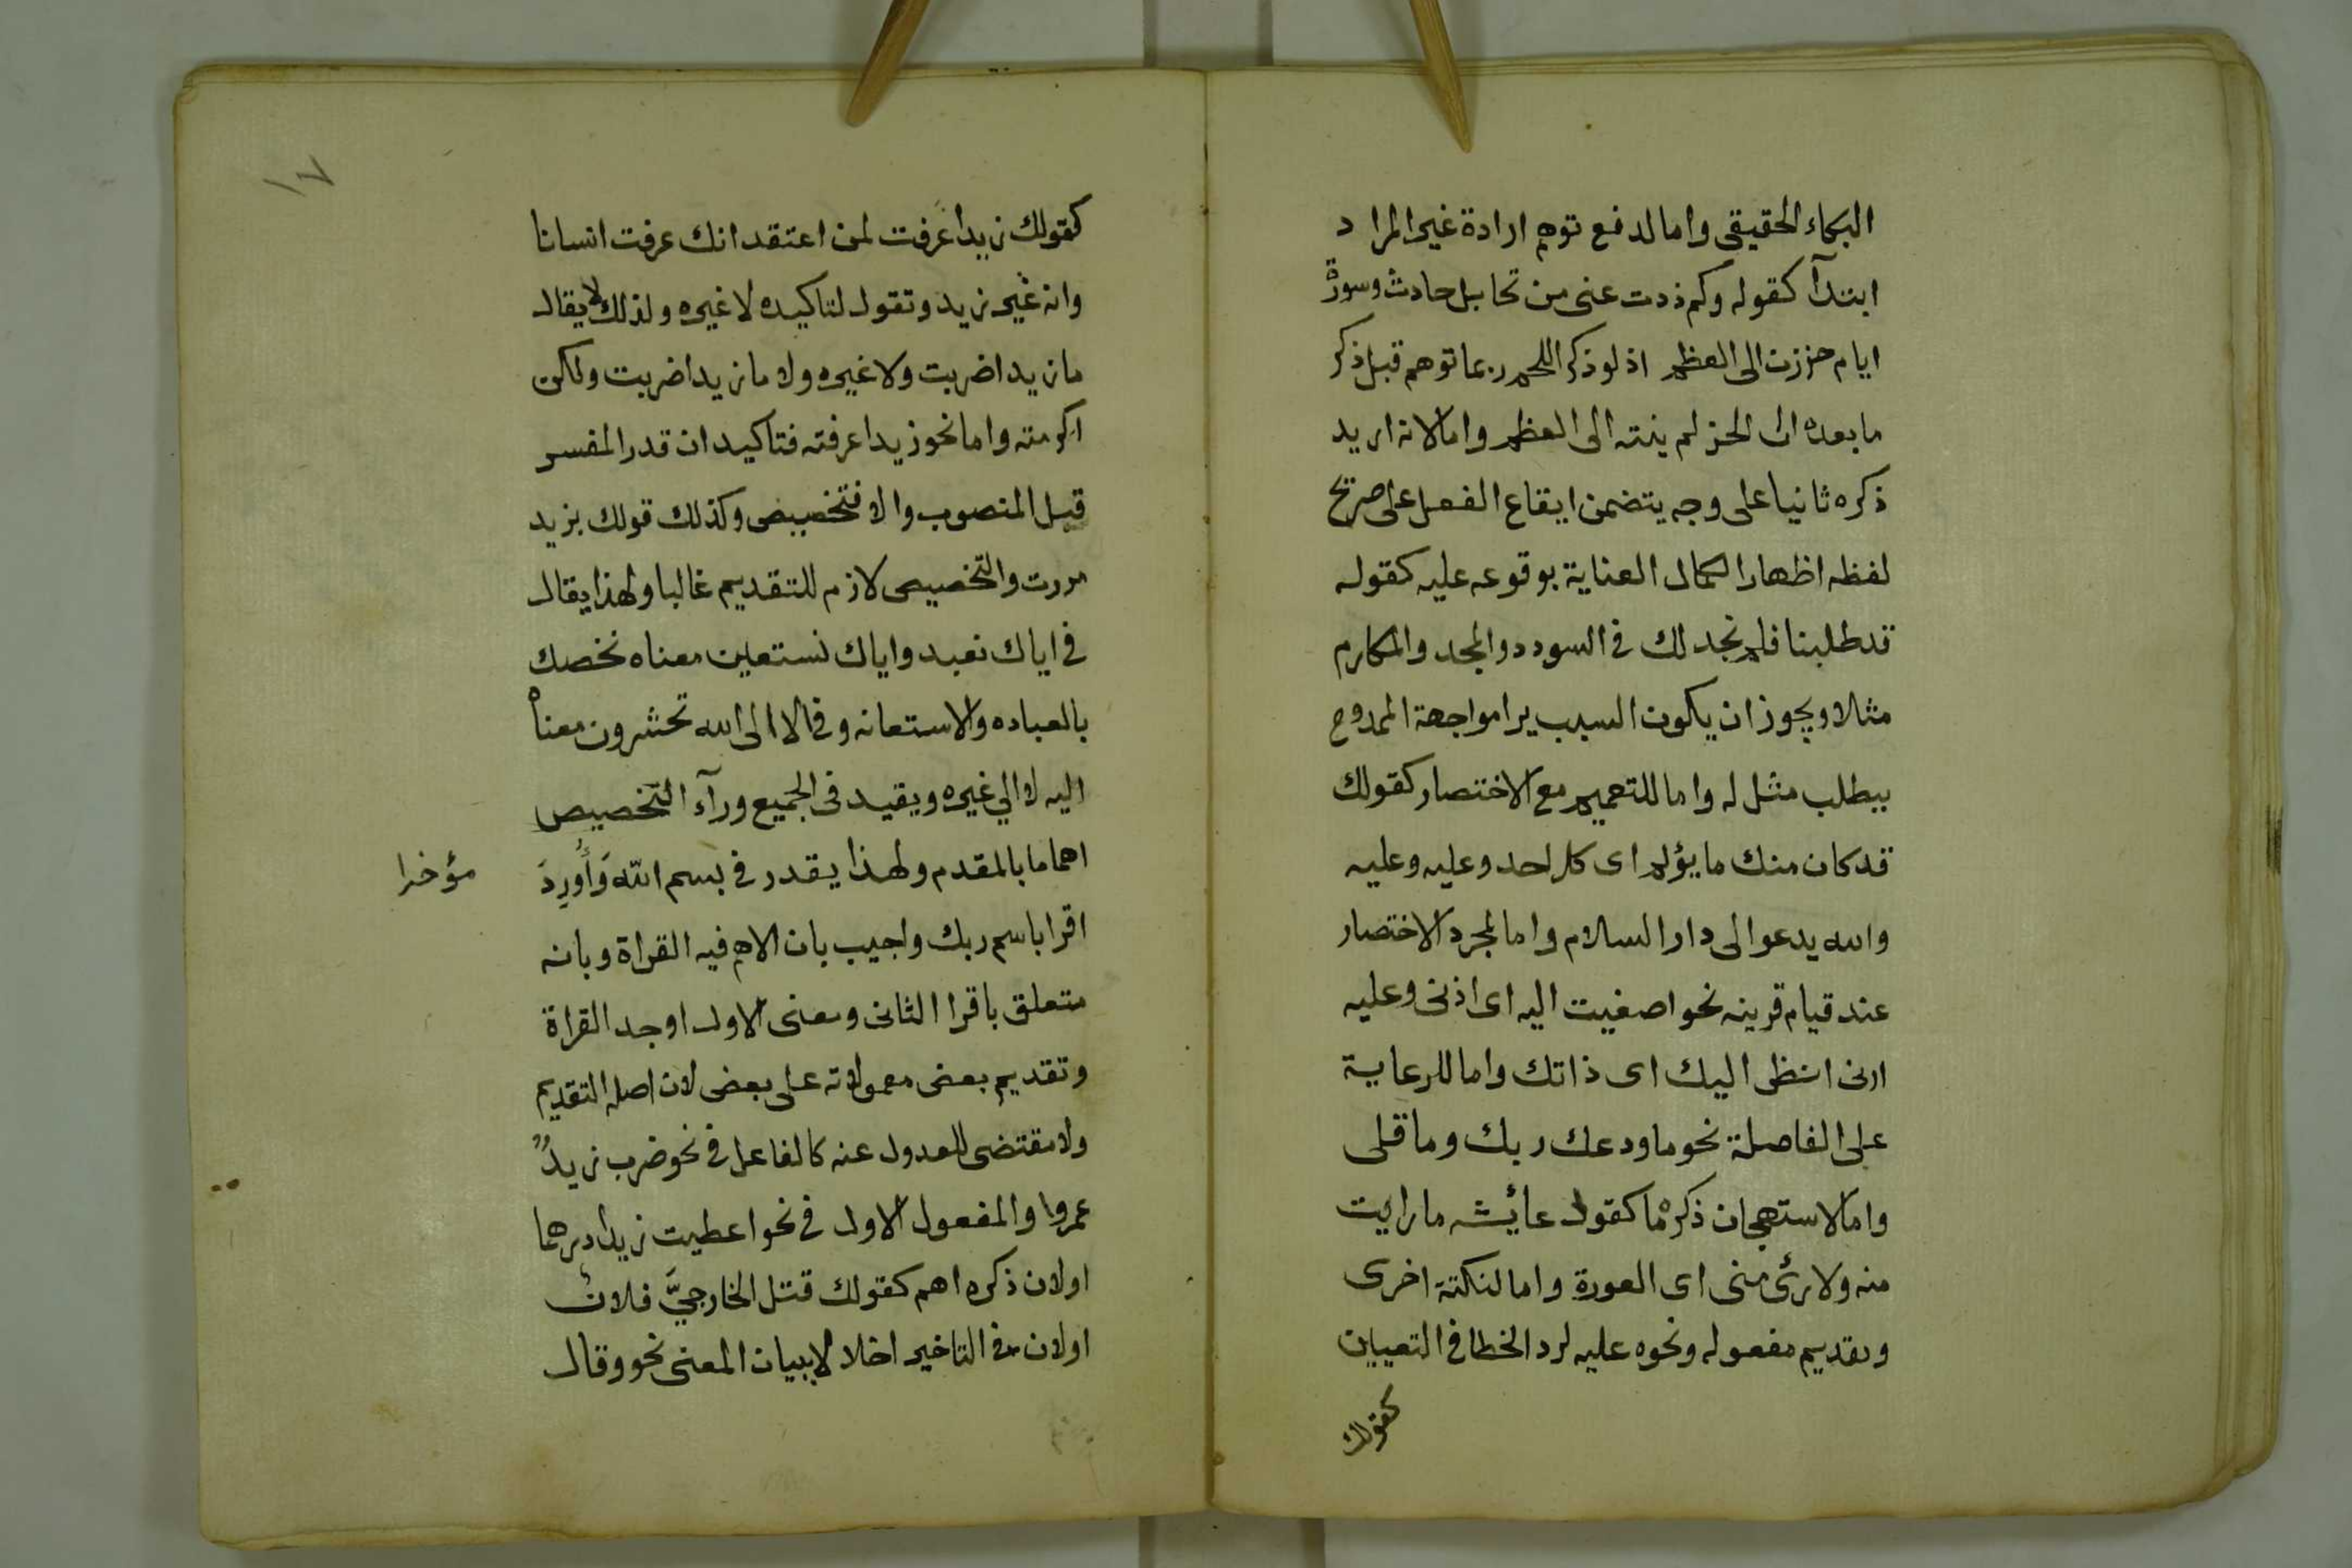 البكاء الحقيقى واما لدفع توهم ارادة غير المراد
ابتدآ كقوله وكم ذدت عنى من تحامل حادث وسورة
ايام حززن الى العظم اذ لو ذكر اللحم ربما توهم قبل ذكر
ما بعده ان الحز لم ينته الى العظم واما لانه اريد
ذكره ثانيا على وجه يتضمن ايقاع الفعل على صريح
لفظه اظهارا لكمال العناية بوقوعه عليه كقوله
قد طلبنا فلم نجد لك فى السودد والمجد والمكارم
مثلا ويجوز ان يكون السبب ترا مواجهة الممدوح
بطلب مثل له واما للتعميم مع الاختصار كقولك
قد كان منك ما يؤلم اى كل احد وعليه وعليه
والله يدعو الى دار السلام واما لمجرد الاختصار
عند قيام قرينه نحو اصغيت اليه اى اذنى وعليه
ارنى انظر اليك اى ذاتك واما للرعاية
على الفاصلة نحو ما ودعك ربك وما قلى
واما لاستهجان ذكره ما كقول عائشه ما رايت
منه ولا رئى منى اى العورة واما لنكتة اخرى
وتقديم مفعوله ونحوه عليه لرد الخطا فى التعيين
كقولك
١٧
كقولك زيدا عرفت لمن اعتقد انك عرفت انسانا
وانه غير زيد وتقول لتاكيده لا غيره ولذلك لا يقال
ما زيدا ضربت ولا غيره ولا ما زيدا ضربت ولكن
اكرمته واما نحو زيدا عرفته فتاكيد ان قدر المفسر
قبل المنصوب والا فتخصيص وكذلك قولك بزيد
مررت والتخصيص لازم للتقديم غالبا ولهذا يقال
فى اياك نعبد واياك نستعين معناه نخصك
بالعباده والاستعانه وفى لا الى الله تحشرون معناه
اليه لا الي غيره ويفيد فى الجميع ورآء التخصيص
اهماما بالمقدم ولهذا يقدر فى بسم الله وَأُورِدَ
مؤخرا
اقرا باسم ربك واجيب بان الاهم فيه القراة وبانه
متعلق باقرا الثانى ومعنى الاول اوجد القراة
وتقديم بعض معمولاته على بعض لان اصله التقديم
ولا مقتضى للعدول عنه كالفاعل فى نحو ضرب زيدٌ
عمروا والمفعول الاول فى نحو اعطيت زيدا درهما
اولان ذكره اهم كقولك قتل الخارجيَّ فلانٌ
اولان فى التاخير اخلالا ببيان المعنى نحو وقال